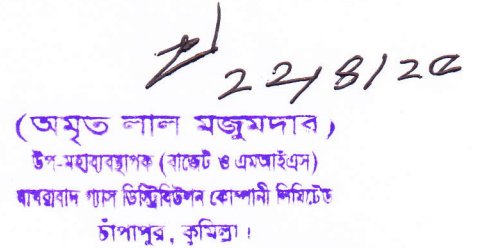 ২২/৪/২৫
(অমৃত লাল মজুমদার)
উপ-মহাব্যবস্থাপক (বাজেট ও এমআইএস)
বাখরাবাদ গ্যাস ডিস্ট্রিবিউশন কোম্পানী লিমিটেড
চাঁপাপুর, কুমিল্লা।